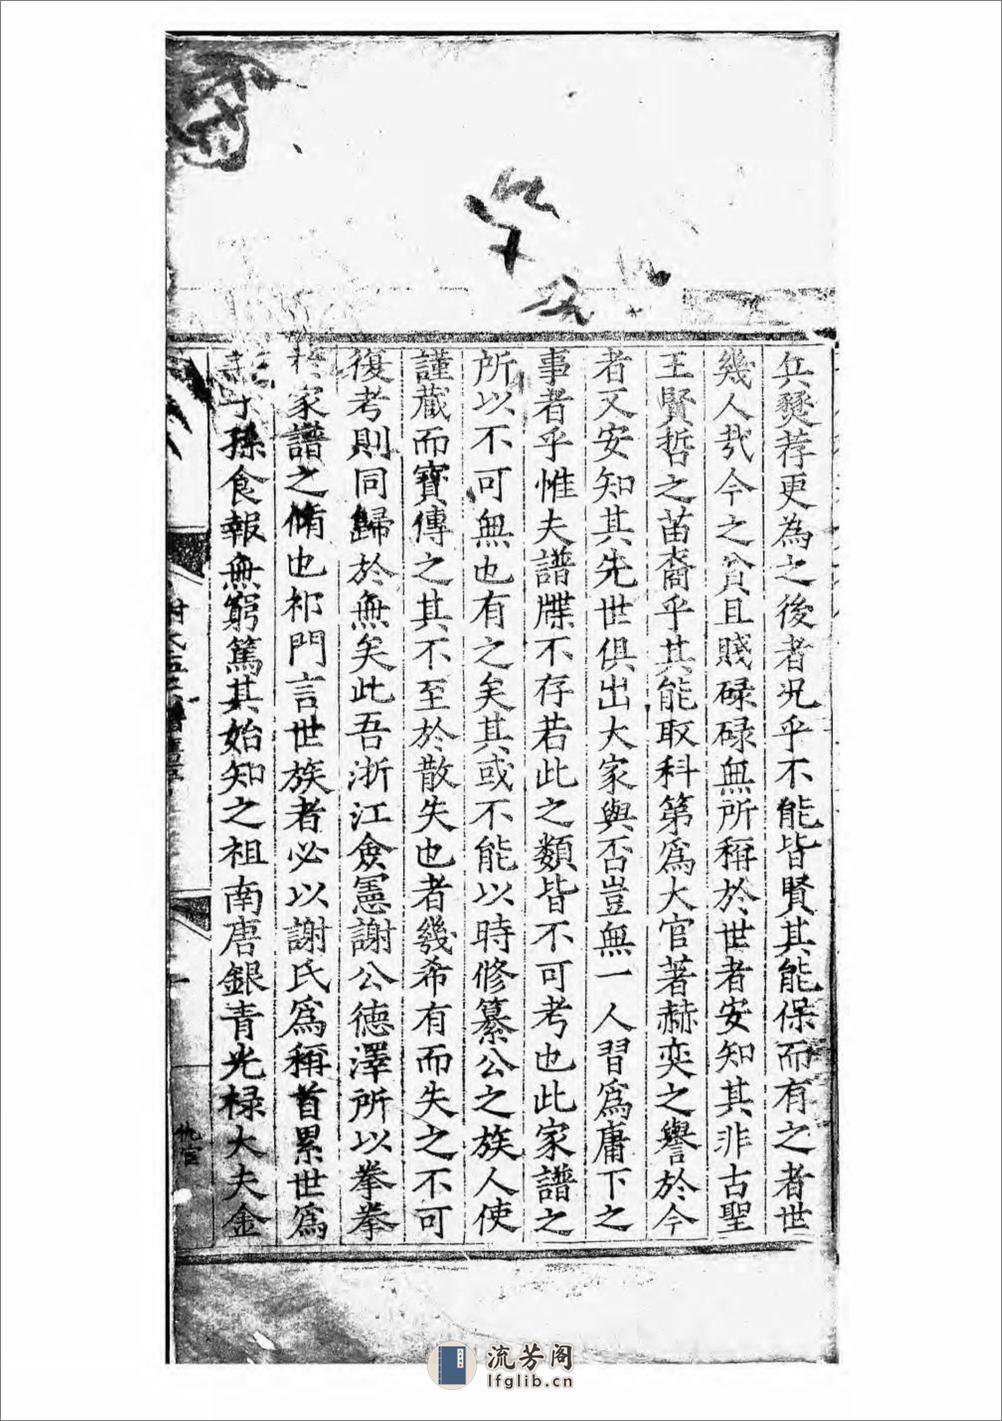 兵燹荐更為之後者况乎不能皆賢其能保而有之者世
幾人㢤今之貧且賤碌碌無所稱於世者安知其非古聖
王賢哲之苗裔乎其能取科第爲大官著赫奕之譽於今
者又安知其先世俱出大家與否豈無一人習爲庸下之
事者乎惟夫譜牒不存若此之類皆不可考也此家譜之
所以不可無也有之矣其或不能以時修纂公之族人使
謹蔵而寳傳之其不至於散失也者幾希有而失之不可
復考則同歸於無矣此吾浙江僉憲謝公德澤所以拳拳
於家譜之脩也祁門言世族者必以謝氏爲稱首累世爲
子孫食報無窮篤其始知之祖南唐銀青光禄大夫金
流芳阁
lfglib.cn